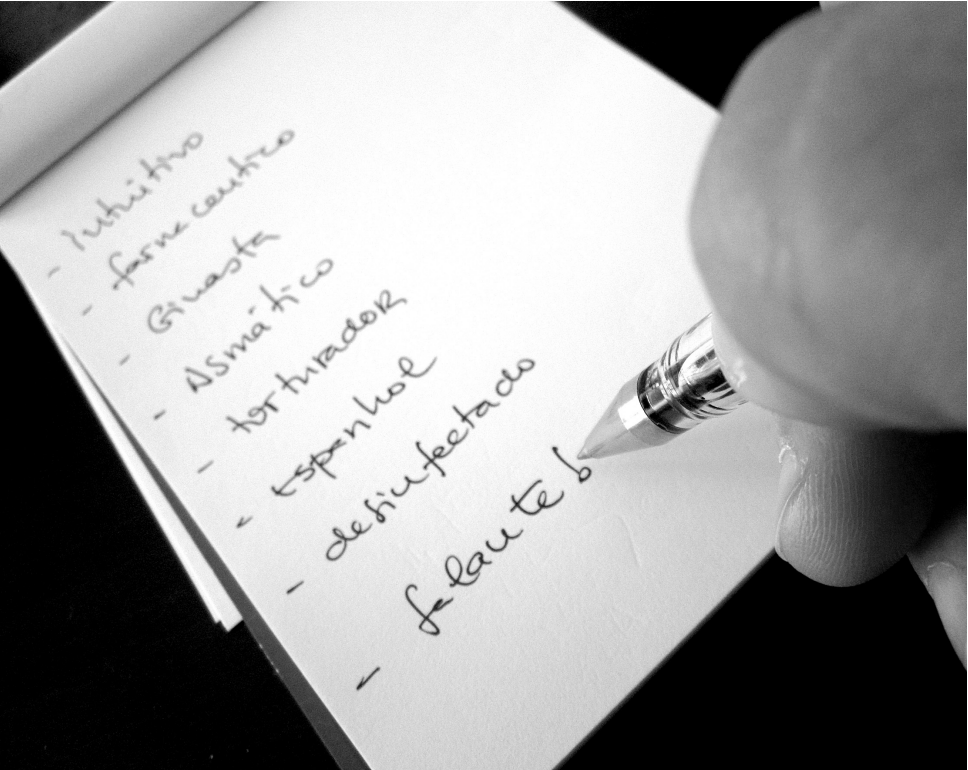 - Intuitivo
- farmaceutico
- Ginasta
- Asmático
- torturador
- Espanhol
- desinfectado
- falante b